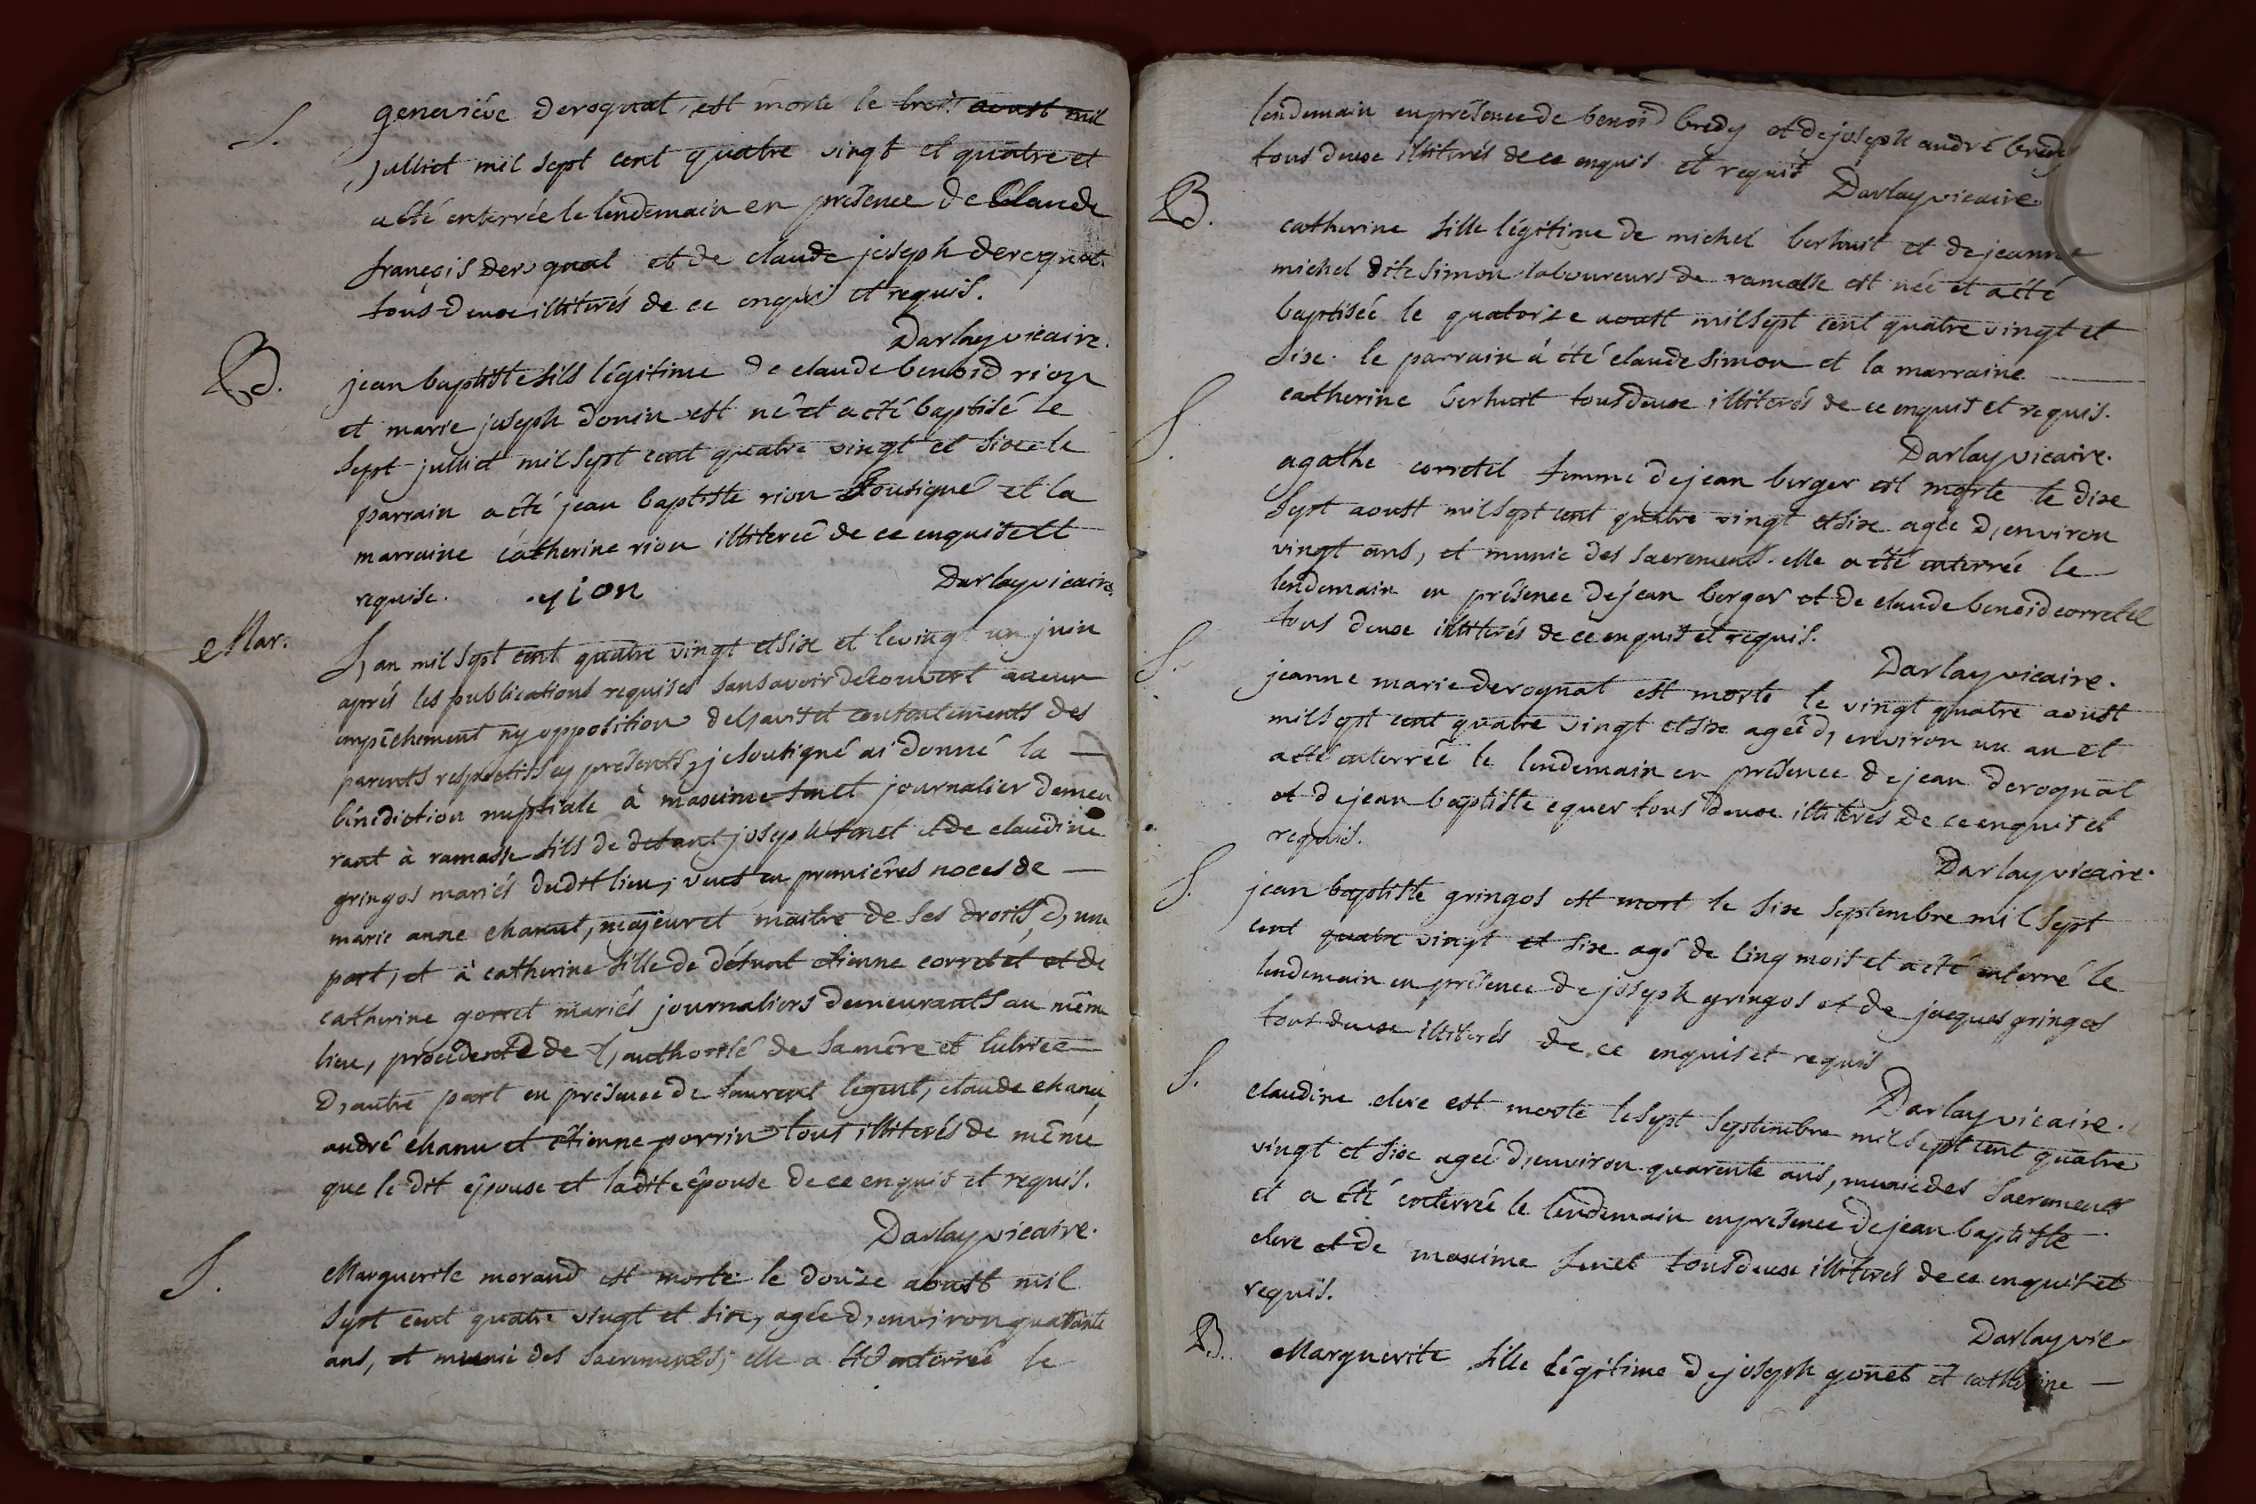 S. geneviéve derognat est morte le trois aoust mil
julliet mil sept cent quatre vingt et quatre et
a été enterrée le lendemain en présence de Claude
françois derognat et de claude joseph derognat
tous deuxe illiterés de ce enquis et requis.
Darlay vicaire.
B. jean baptiste fils légitime de claude benoid rion
et marie joseph donin est né et a été baptisé le
sept julliet mil sept cent quatre vingt et sixe le
parrain a été jean baptiste rion soussigné et la
marraine catherine rion illiterée de ce enquise et
requise. rion Darlay vicaire.
Mar. L, an mil sept cent quatre vingt et sixe et le vingt un juin
aprés les publications requises sans avoir découvert aucun
empêchement ny opposition de l'avis et consentements des
parents respectifs cy présents, je soussigné ai donné la
bénédiction nuptiale à maxime funet journalier demeu
rant à ramasse fils de défunt joseph funet et de claudine
gringos mariés dudit lieu, veuf en premiéres noces de
marie anne chanut, majeur et maitre de ses droits, d, une
part, et à catherine fille de défunt étienne corretet et de
catherine gorret mariés journaliers demeurants au même
lieu, procédente de l, authorité de sa mére et
d, autre part en présence de laurent legent, claude chanu,
andré chanu et étienne perrin tous illiterés de même
que le dit épouse et ladite épouse de ce enquis et requis.
Darlay vicaire.
S. Marguerite morand est morte le douze aoust mil
sept cent quatre vingt et sixe, agée d, environ quarante
ans, et munie des sacrements; elle a été enterrée le
lendemain en présence de benoid bredy et de joseph andré bredy
tous deuxe illiterés de ce enquis et requis
Darlay vicaire.
B. catherine fille légitime de michel berhuit et de jeanne
michel dite simon laboureurs de ramasse est née et a été
baptisée le quatorze aoust mil sept cent quatre vingt et
sixe. le parrain a été claude simon et la marraine
catherine berhuit tous deuxe illiterés de ce enquis et requis.
Darlay vicaire.
S. agathe corretel femme de jean berger est morte le dixe
sept aoust mil sept cent quatre vingt et sixe agée d, environ
vingt ans, et munie des sacrements. elle a été enterrée le
lendemain en présence de jean berger et de claude benoid corretel
tous deuxe illiterés de ce enquis et requis.
Darlay vicaire.
S. jeanne marie derognat est morte le vingt quatre aoust
mil sept cent quatre vingt et sixe agée d, environ un an et
a été enterrée le lendemain en présence de jean derognat
et de jean baptiste equer tous deuxe illiterés de ce enquis et
requis.
Darlay vicaire.
S. jean baptiste gringos est mort le sixe septembre mil sept
cent quatre vingt et sixe agé de cinq mois et a été enterré le
lendemain en présence de joseph gringos et de jacques gringos
tous deuxe illiterés de ce enquis et requis
Darlay vicaire.
S. claudine clere est morte le sept septembre mil sept cent quatre
vingt et sixe agée d, environ quarente ans, munie des sacrements
et a été enterrée le lendemain en présence de jean baptiste
clere et de maxime funet tous deuxe illiterés de ce enquis et
requis.
Darlay vic
B. Marguerite fille légitime de joseph gonet et catherine